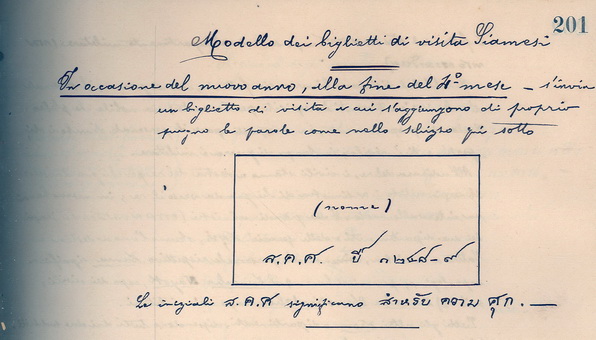 201
Modello dei biglietti di visita Siamesi
In occasione del nuovo anno, alla fine del 4º mese – s'invia
un biglietto di visita a cui s'aggiungono di proprio
pugno le parole come nello schizzo qui sotto
(nome)
ส.ค.ศ. ปี ๓๒๔๘-๙
Le iniziali ส.ค.ศ significano สำหรับ ความ ศุก. —